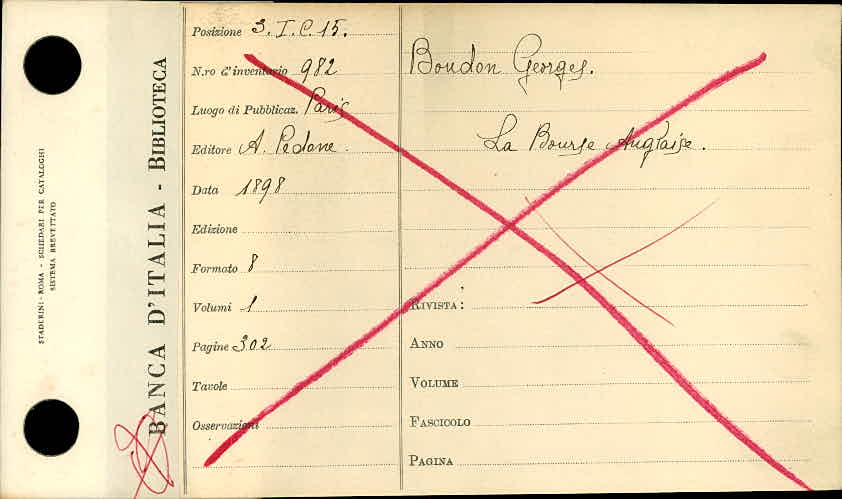 STADERINI - ROMA - SCHEDARI PER CATALOGHI
SISTEMA BREVETTATO
BANCA D'ITALIA - BIBLIOTECA
Posizione 3. I. C. 15.
N.ro d'inventario 982
Luogo di Pubblicaz. Paris
Editore A. Pedone.
Data 1898
Edizione
Formato 8
Volumi 1
Pagine 302
Tavole
Osservazioni
Boudon Georges.
La Bourse Anglaise.
RIVISTA:
ANNO
VOLUME
FASCICOLO
PAGINA